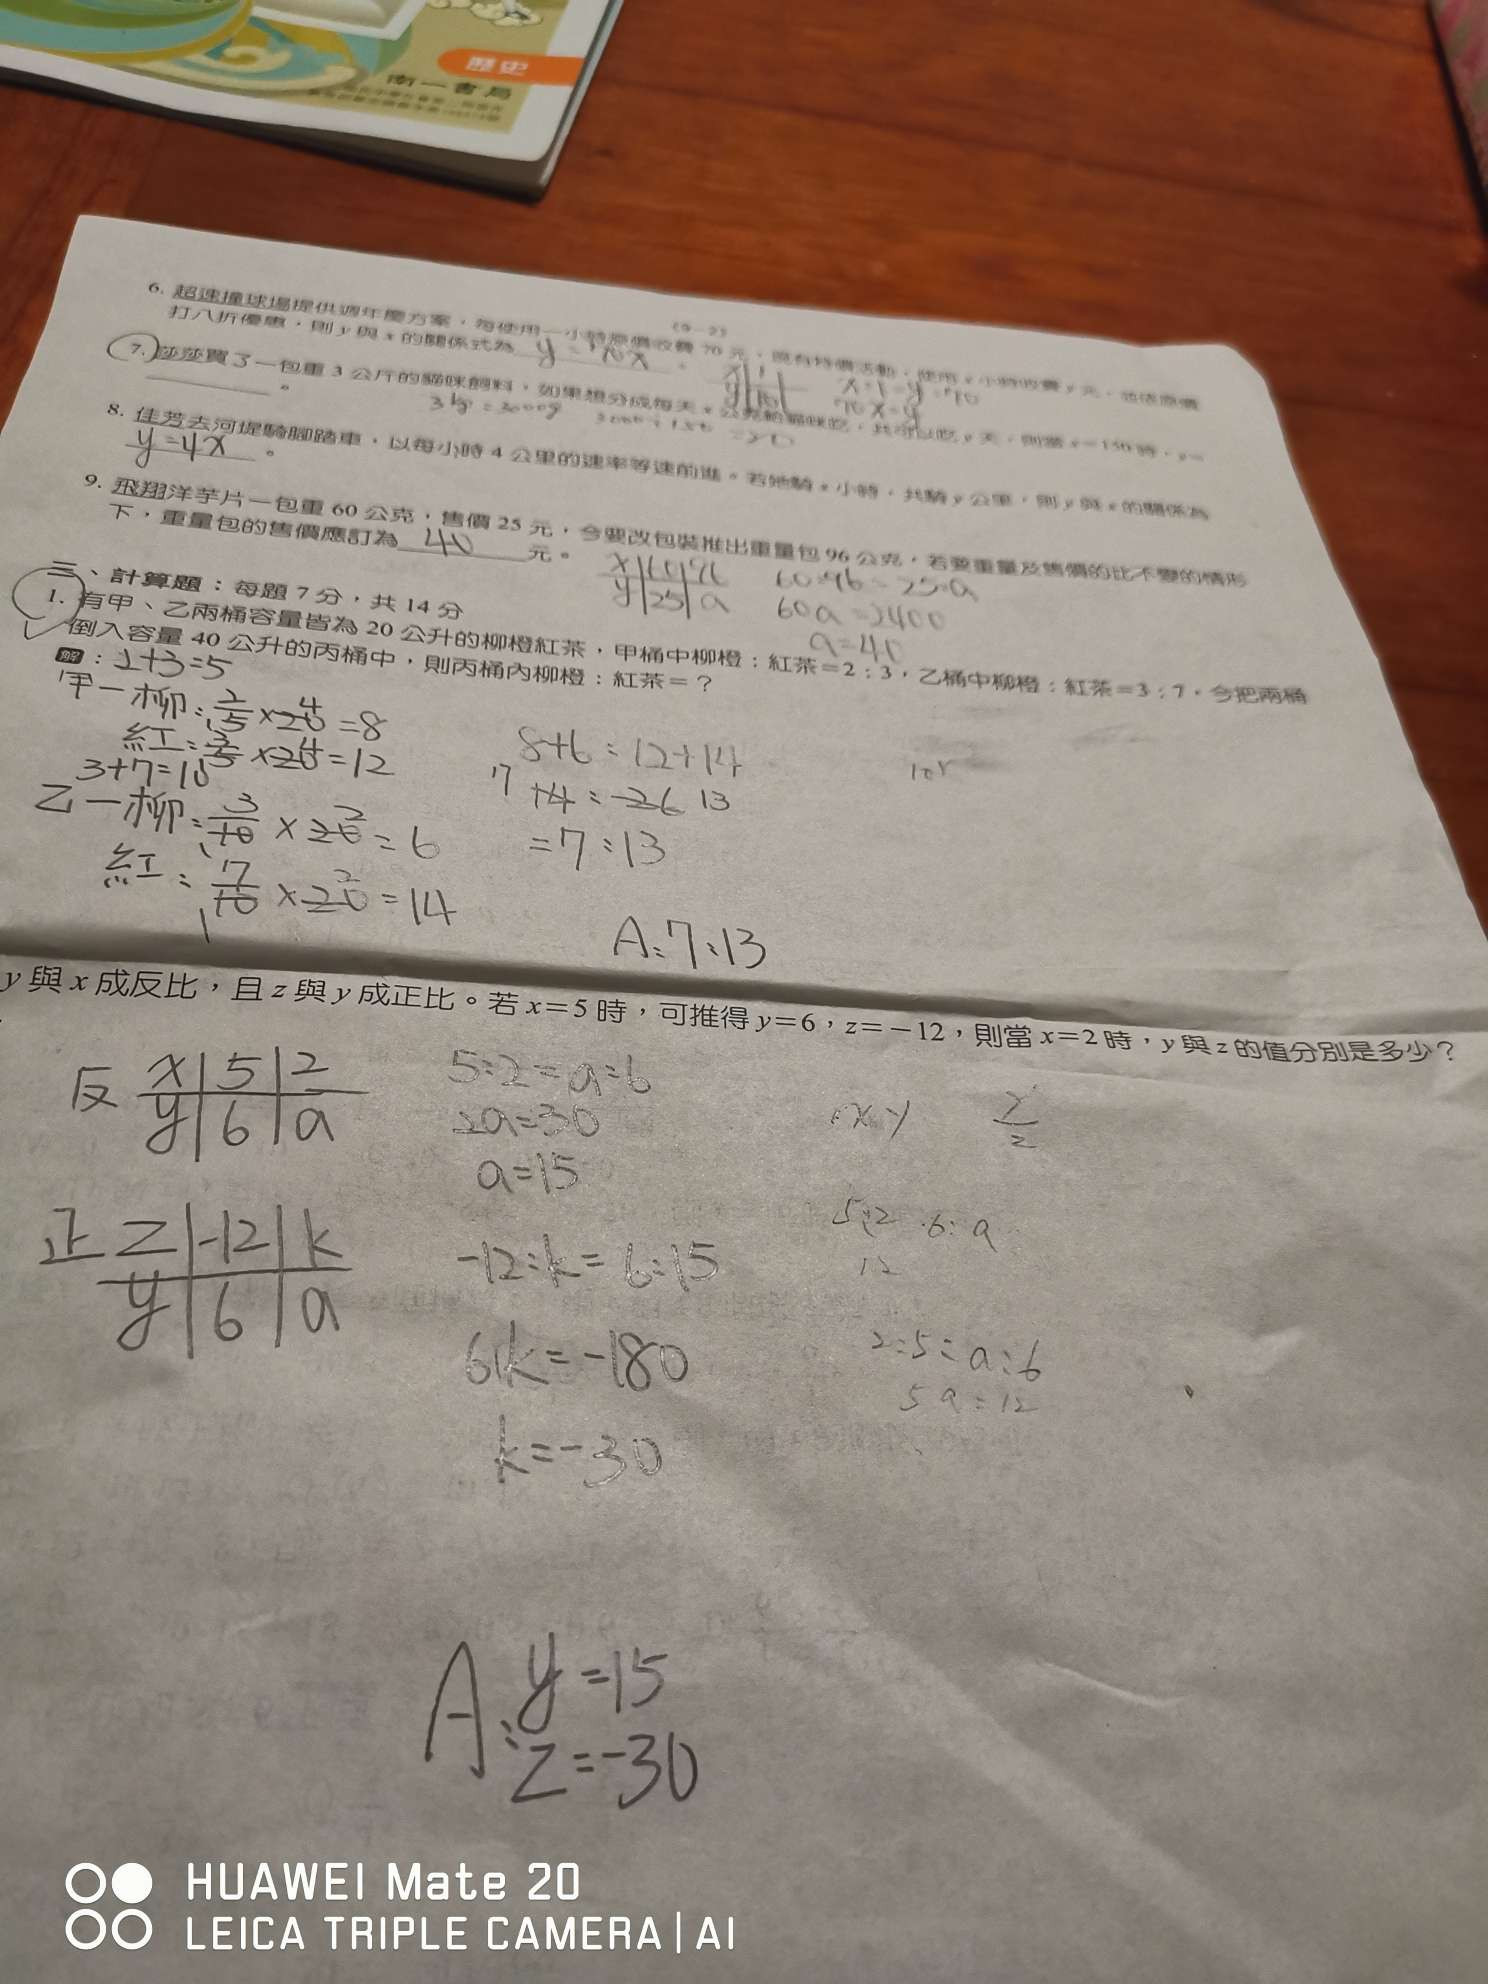 歷史
南一書局
(9-2)
6. 超速撞球場提供週年慶方案，每使用一小時原價收費 70 元，
打八折優惠，則 y 與 x 的關係式為 y=70x。
x:1=y:70
70x=y
7. 莎莎買了一包重 3 公斤的貓咪飼料，如果想分成每天 x 公克給貓咪吃，共可以吃 y 天，則當 x=150 時，y=
3kg=3000g
。
8. 佳芳去河堤騎腳踏車，以每小時 4 公里的速率等速前進。若她騎 x 小時，共騎 y 公里，則 y 與 x 的關係為
y=4x。
9. 飛翔洋芋片一包重 60 公克，售價 25 元，今要改包裝推出重量包 96 公克，若要重量及售價的比不變的情形
下，重量包的售價應訂為 40 元。
x|60|96
y|25|a
60:96=25:a
60a=2400
a=40
三、計算題：每題 7 分，共 14 分
1. 有甲、乙兩桶容量皆為 20 公升的柳橙紅茶，甲桶中柳橙：紅茶=2：3，乙桶中柳橙：紅茶=3：7，今把兩桶
倒入容量 40 公升的丙桶中，則丙桶內柳橙：紅茶=？
解：2+3=5
甲-柳:2/5×20=8
紅:3/5×20=12
3+7=10
乙-柳:3/10×20=6
紅:7/10×20=14
8+6:12+14
=7:13
A:7:13
y 與 x 成反比，且 z 與 y 成正比。若 x=5 時，可推得 y=6，z=-12，則當 x=2 時，y 與 z 的值分別是多少？
反 x|5|2
y|6|a
5:2=a:6
2a=30
a=15
xy
y/z
正 z|-12|k
y|6|a
-12:k=6:15
6k=-180
k=-30
5:2 6:a
12
2:5=a:6
5a=12
A:y=15
z=-30
HUAWEI Mate 20
LEICA TRIPLE CAMERA | AI